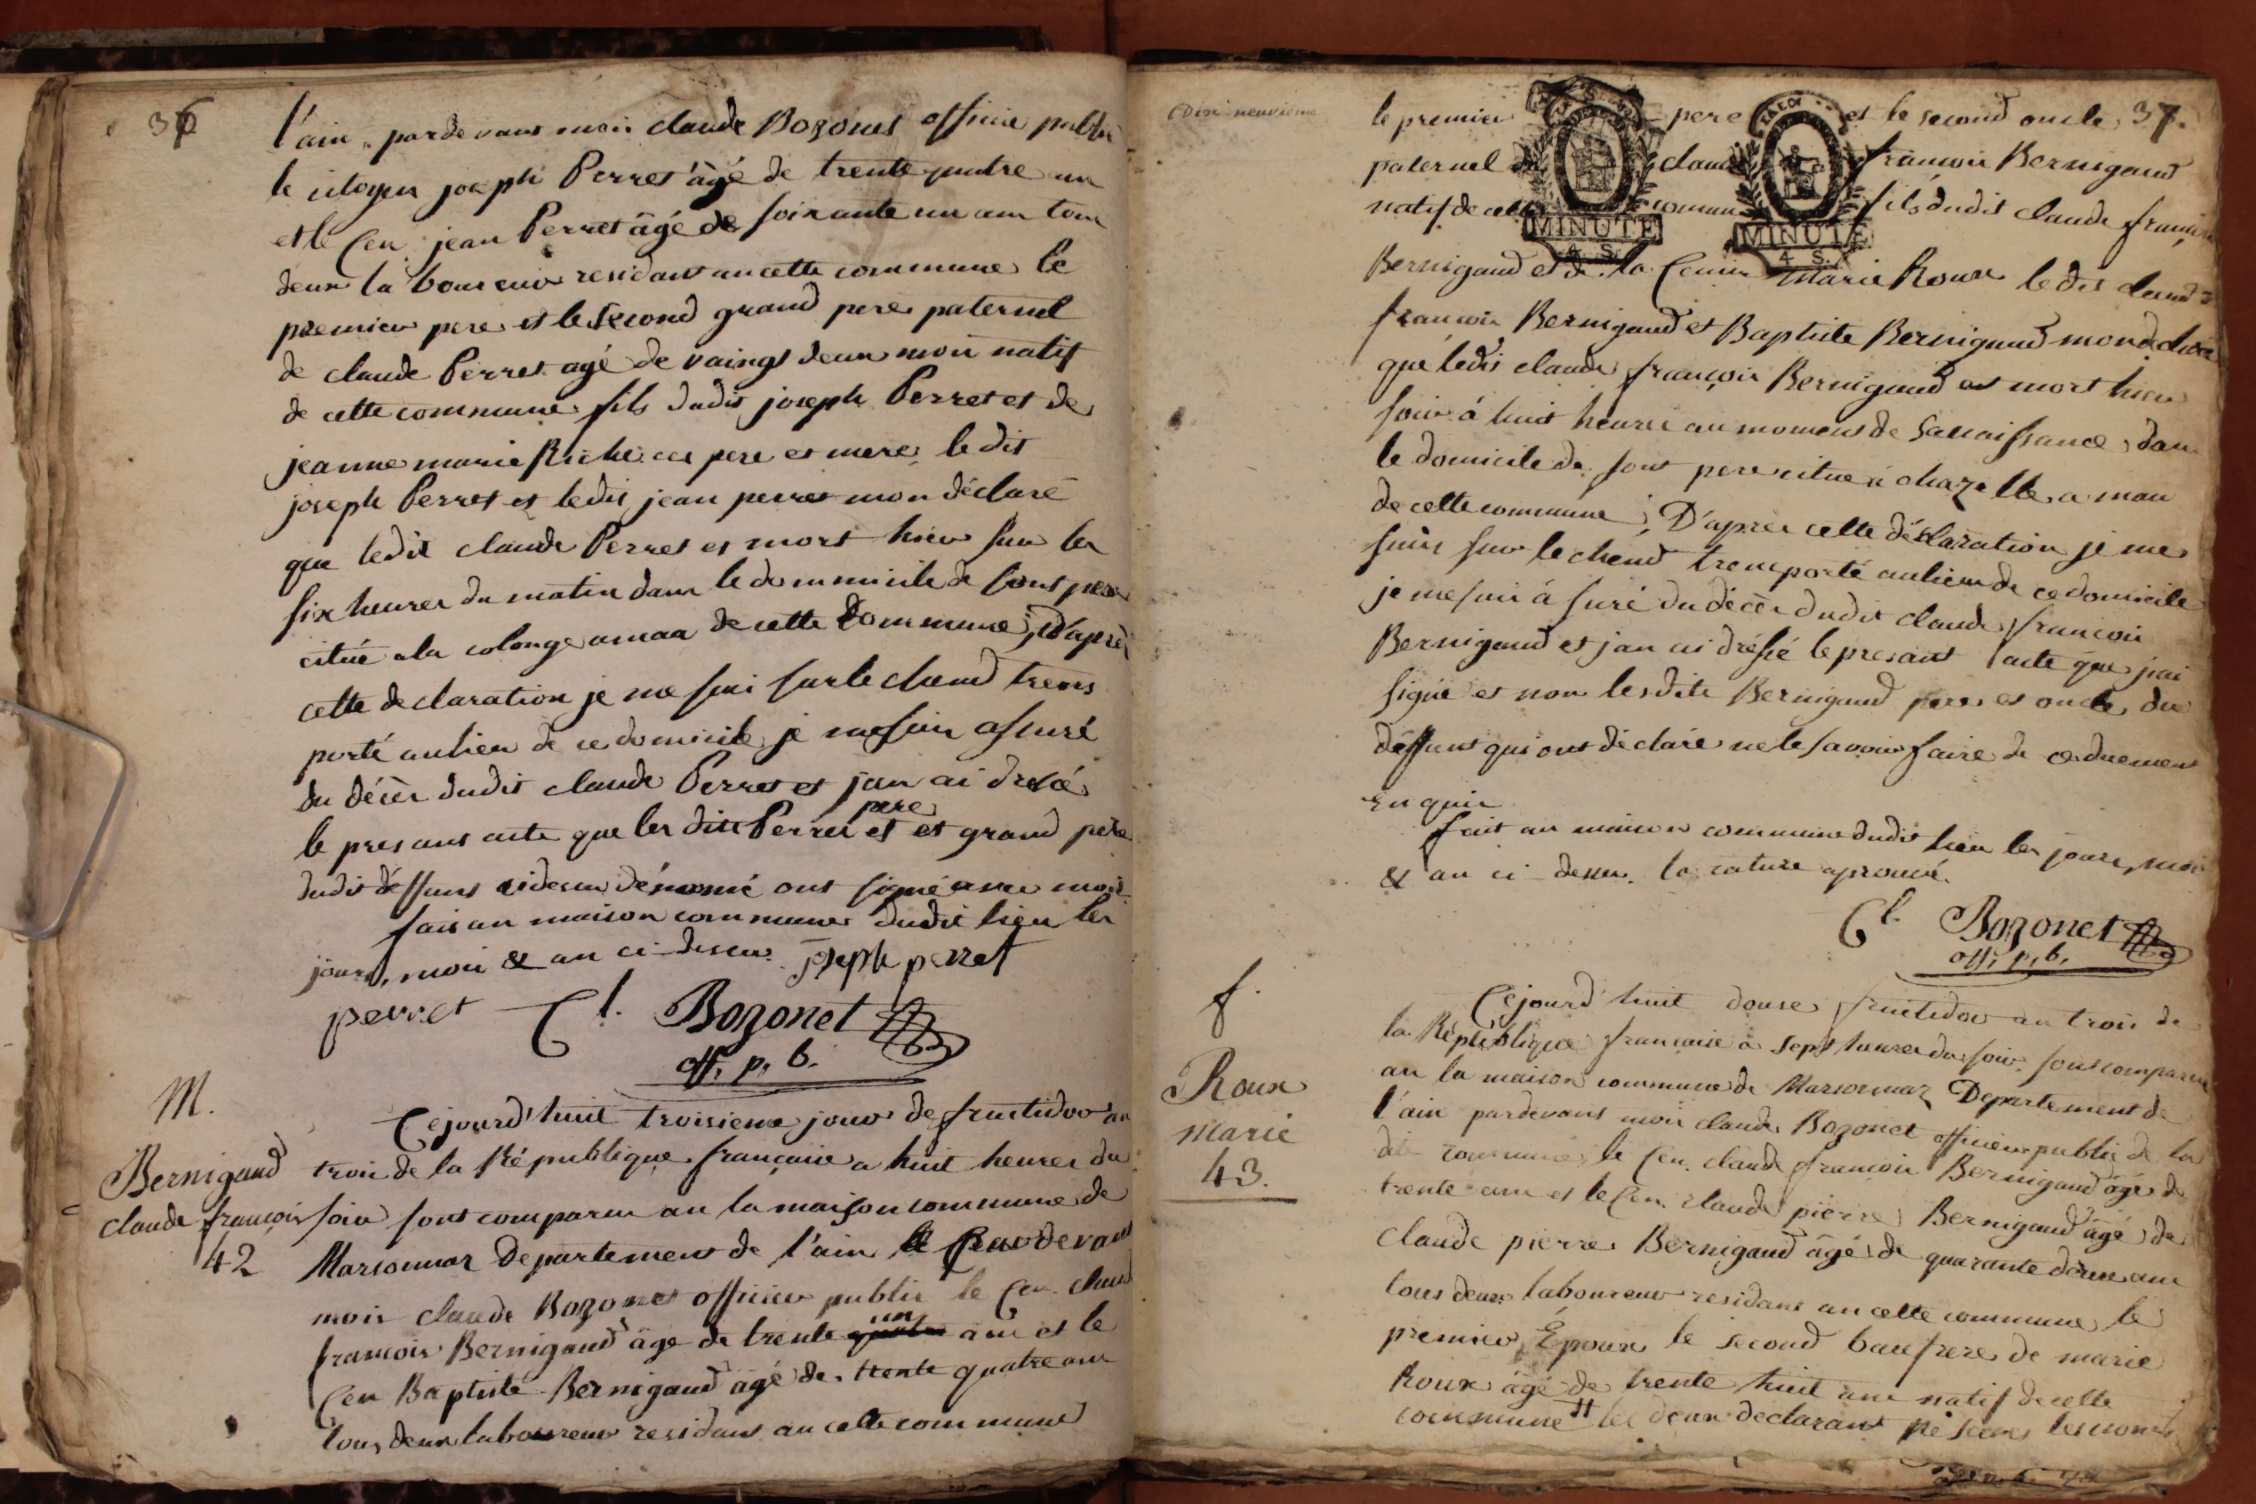 36
l'ain pardevant moi claude Bozonet officier public
le citoyen joseph Perret âgé de trente quatre an
et le Cen jean Perret âgé de soixante un an tous
deux laboureur residant an cette commune le
premier pere et le second grand pere paternel
de claude Perret agé de vaingt deux moi natif
de cette commune fils dudit joseph Perret et de
jeanne marie Riche ces pere et mere le dit
joseph Perret et ledit jean perret mon déclaré
que ledit claude Perret es mort hier sur les
six heures du matin dans le dommicile de sont pere
citué a la colonge amaa de cette Commune, D'après
cette declaration je me sui surle chand trens
porté aulieu de ce domicile je me suis assuré
du décès dudit claude Perret et jan ai dressé
le presant acte que les dits Perret pere et et grand pere
dudit déffunt cidesu dénomé ont signé avec moi
fait an maison commune dudit lieu les
jours, moi & an ci-desu. joseph perret
perret Cl. Bozonet
off. p. b.
M.
Bernigaud
claude françois
42
Cejourd'huit troisieme jour de fructidor an
trois de la République française a huit heures du
soir sont comparu an la maison commune de
Marsonnaz Departement de l'ain pardevant
moi claude Bozonet officier public le Cen claud
francois Bernigaud âgé de trente un ans et le
Cen Baptiste Bernigaud âgé de trente quatre ans
tous deux laboureur residant an cette commune
Dixneuvieme
37.
le premier pere et le second oncle
paternel de claude francois Bernigaud
natif de cette comune fils dudit claude françois
MINUTE
4 S.
MINUTE
4 S.
Bernigaud et de la Cenne Marie Roux le dit claude
francois Bernigaud et Baptiste Bernigaud mon declaré
que ledit claude françois Bernigaud est mort hier
soir à huit heures au moment de sa naissance dans
le domicile de sont pere citué a chazelle a mau
de cette commune; D'après cette déclaration je me
suis sur le chend trensporté aulieu de ce domicile
je me sui à suré du décès dudit claude francois
Bernigaud et jan ai dréssé le presant acte que jai
signé et non lesdits Bernigaud pere et oncle du
déffunt qui ont déclaré ne le savoir faire de ce duement
enquis
fait an maison commune dudit lieu les jours, moi
& an ci-desu. la rature aprouvé.
Cl. Bozonet
off. p. b.
f.
Roux
Marie
43.
Cejourd'huit douse fructidor an trois de
la République francaise a sept heures du soir sont comparu
an la maison commune de Marsonnaz Departement de
l'ain pardevant moi claude Bozonet officier public de la
dit commune le Cen claude francois Bernigaud âgé de
trente ans et le Cen claude pierre Bernigaud âgé de
claude pierre Bernigaud âgé de quarante deux ans
tous deux laboureur residant an cette commune le
premier Époux le second baufrere de marie
Roux âgé de trente huit ans natif de cette
commune les deux declarant